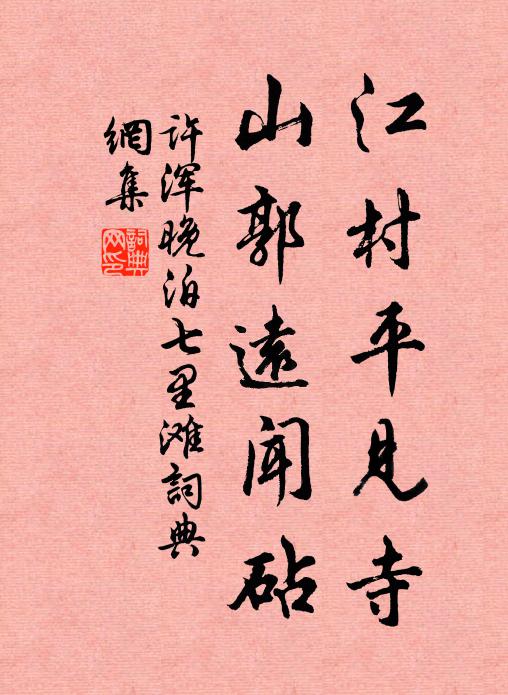 江村平见寺
山郭遠闻砧
许浑晚泊七里滩詞典
網集
詞典网印